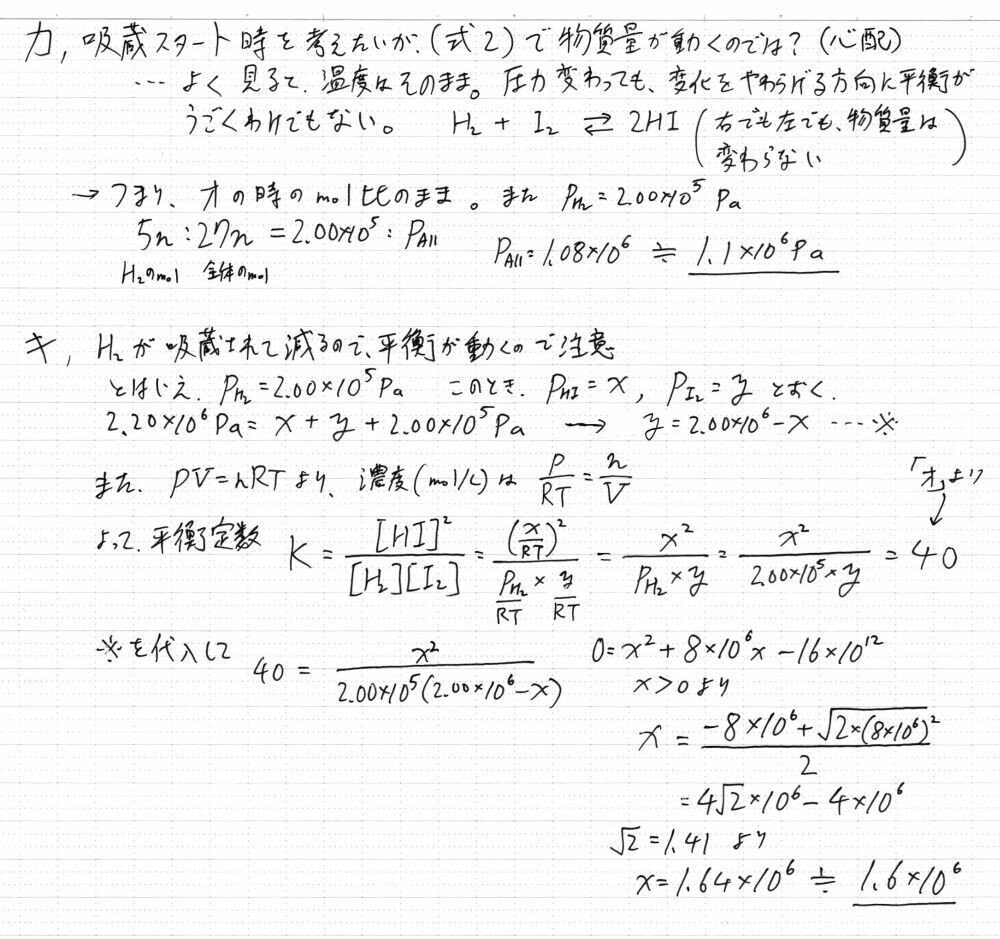 カ, 吸蔵スタート時を考えたいが、(式2)で物質量が動くのでは? (心配)
… よく見ると、温度はそのまま。圧力変わっても、変化をやわらげる方向に平衡が
うごくわけでもない。 H₂ + I₂ ⇄ 2HI (右でも左でも、物質量は
変わらない)
→ つまり、オの時のmol比のまま。また P_H₂ = 2.00×10⁵ Pa
5n : 27n = 2.00×10⁵ : P_All P_All = 1.08×10⁶ ≒ 1.1×10⁶ Pa
H₂のmol 全体のmol
キ, H₂が吸蔵されて減るので、平衡が動くので注意
とはいえ、P_H₂ = 2.00×10⁵ Pa このとき、P_HI = x, P_I₂ = y とおく.
2.20×10⁶ Pa = x + y + 2.00×10⁵ Pa → y = 2.00×10⁶ - x …※
また、PV = nRT より、濃度(mol/L)は P/RT = n/V 「オ」より
よって、平衡定数 K = [HI]²/[H₂][I₂] = (x/RT)²/(P_H₂/RT × y/RT) = x²/(P_H₂ × y) = x²/(2.00×10⁵ × y) = 40
※を代入して 40 = x²/(2.00×10⁵(2.00×10⁶ - x)) 0 = x² + 8×10⁶x - 16×10¹²
x > 0 より
x = (-8×10⁶ + √(2×(8×10⁶)²))/2
= 4√2×10⁶ - 4×10⁶
√2 = 1.41 より
x = 1.64×10⁶ ≒ 1.6×10⁶